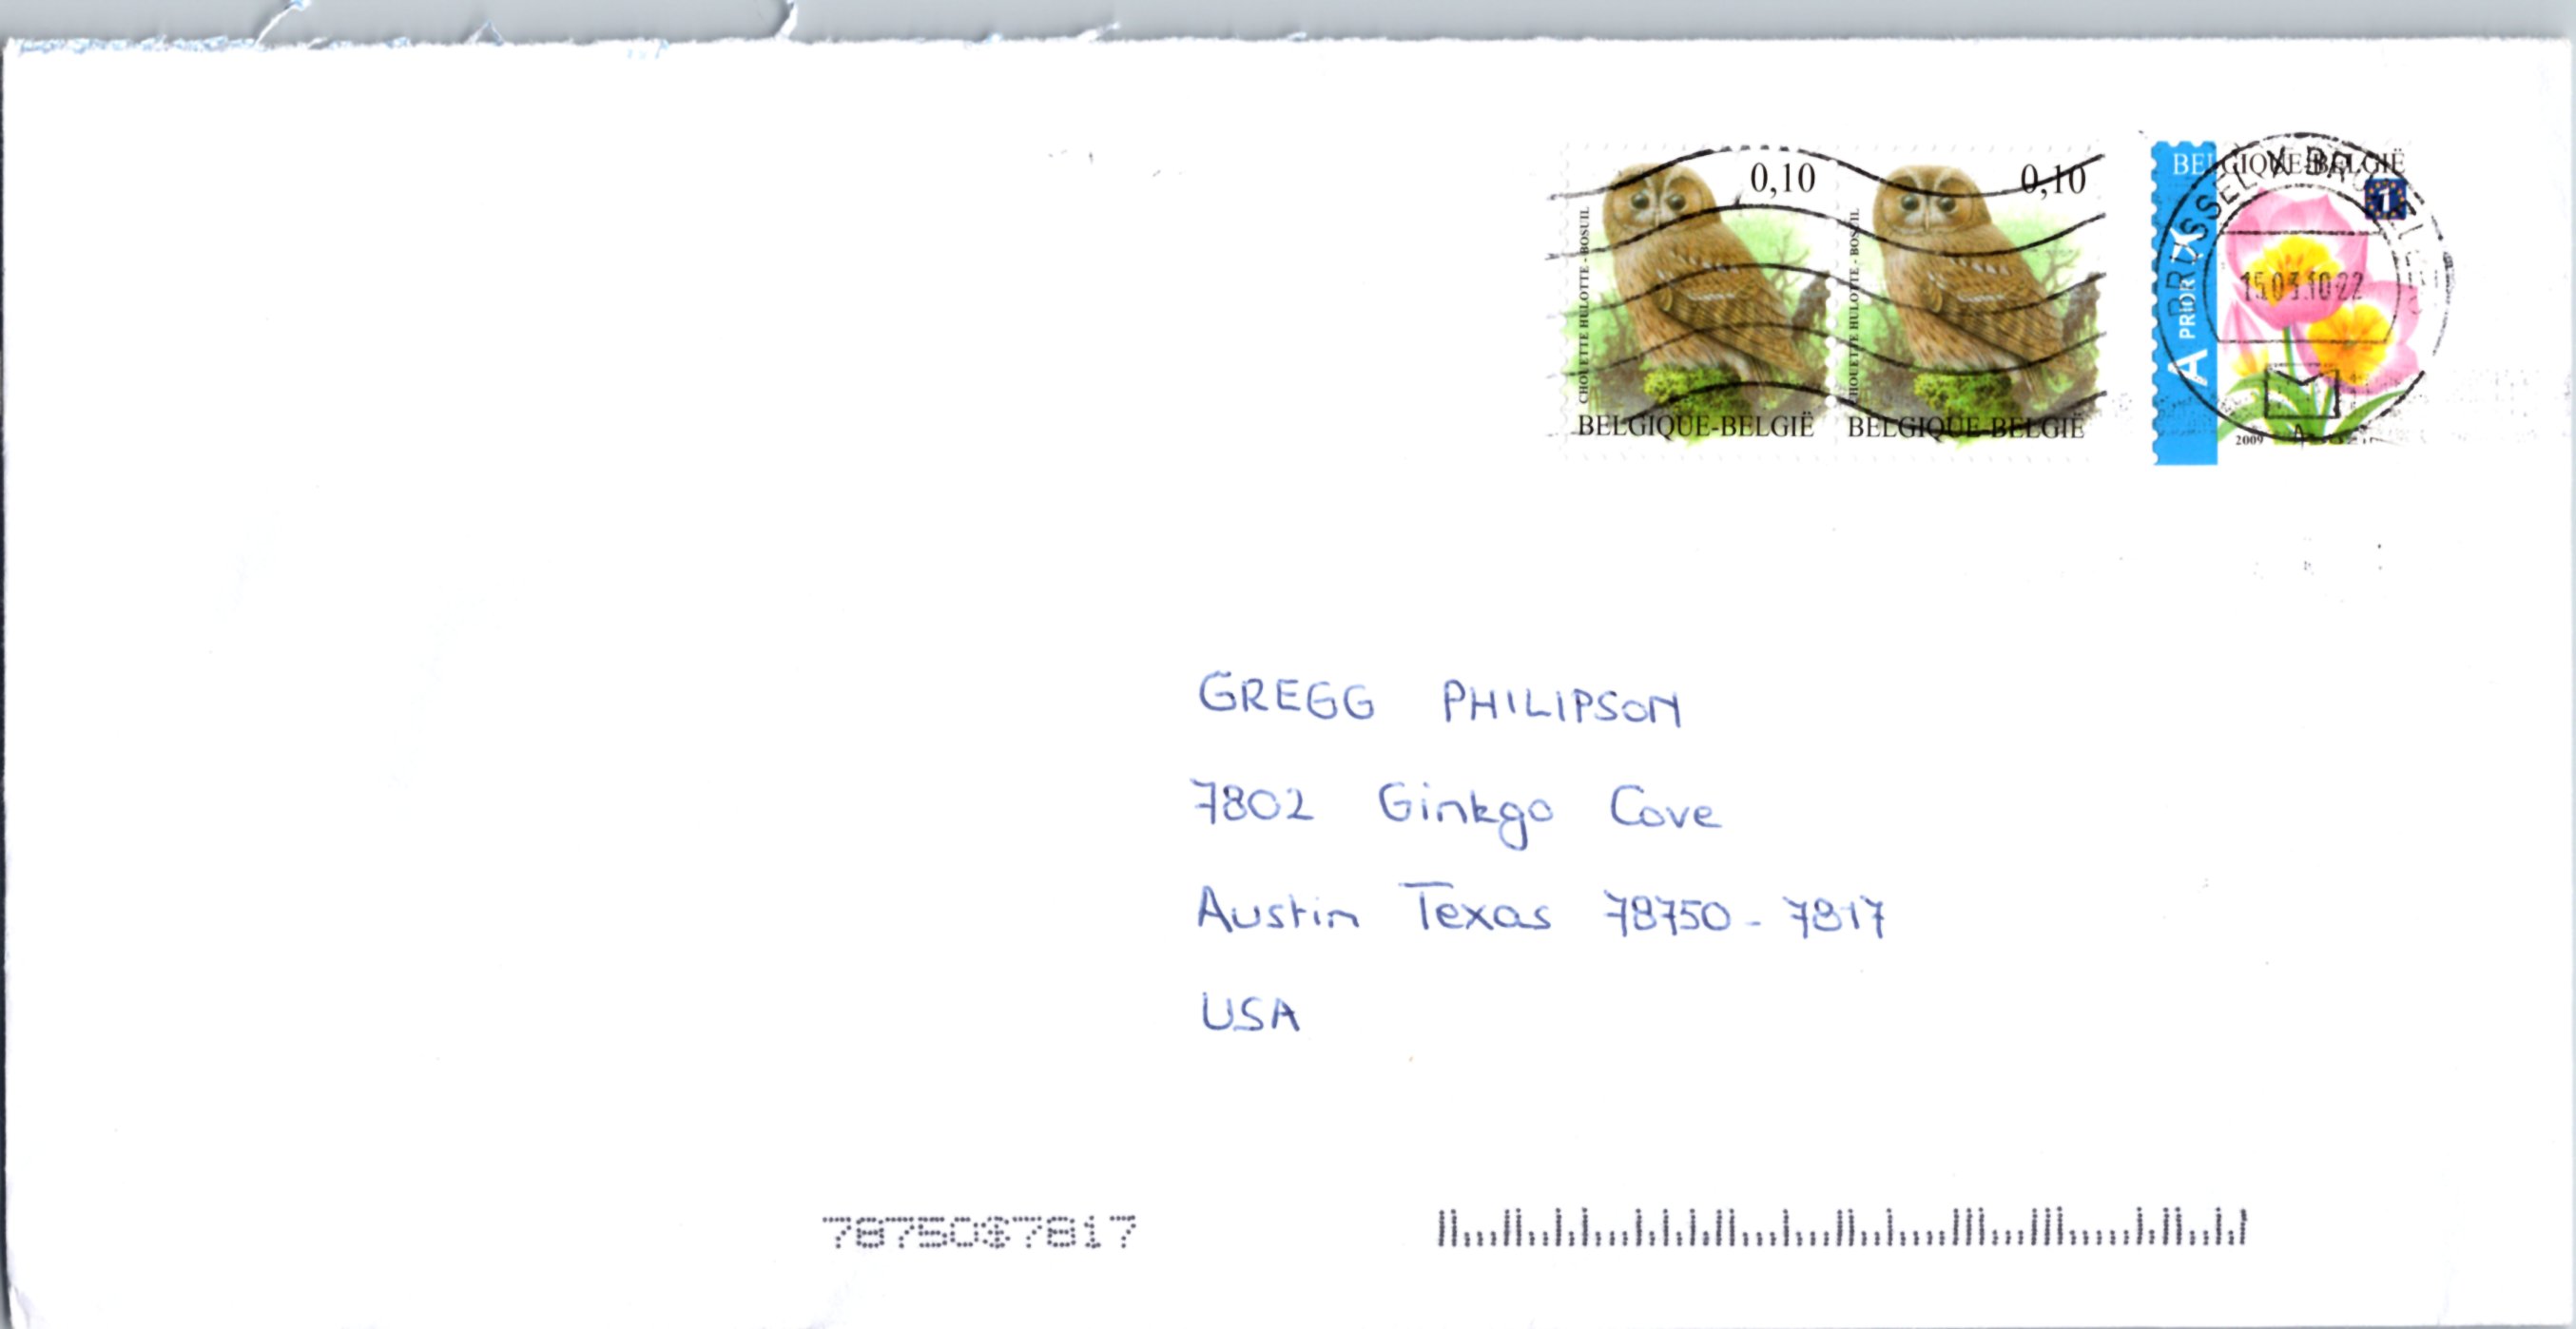 0,10
CHOUETTE HULOTTE - BOSUIL
BELGIQUE-BELGIË
0,10
CHOUETTE HULOTTE - BOSUIL
BELGIQUE-BELGIË
BELGIQUE-BELGIË
1
A PRIOR
2009
15.03.10-22
GREGG PHILIPSON
7802 Ginkgo Cove
Austin Texas 78750 - 7817
USA
78750$7817